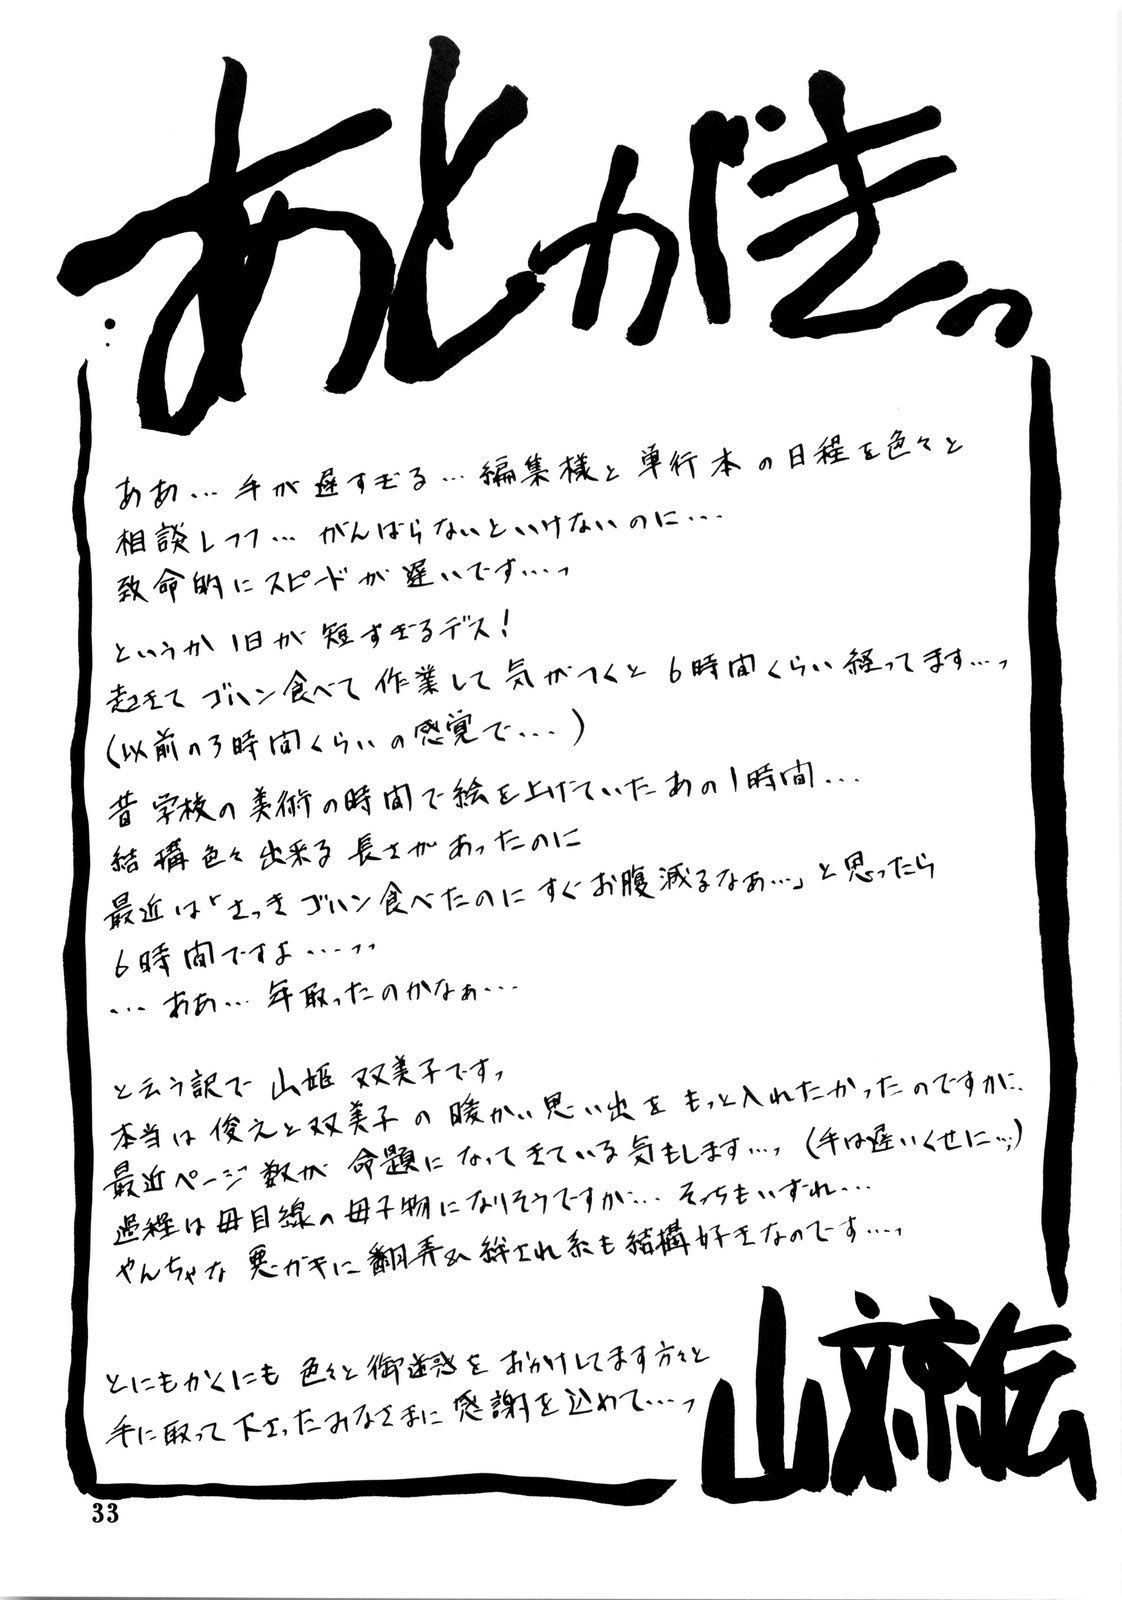 あとがきっ
ああ… 手が遅すぎる… 編集様と単行本の日程を色々と
相談しつつ… がんばらないといけないのに…
致命的にスピードが遅いです…っ
というか1日が短すぎるデス!
起きてゴハン食べて作業して気がつくと6時間くらい経ってます…っ
(以前の3時間くらいの感覚で…)
昔学校の美術の時間で絵を上げていたあの1時間…
結構色々出来る長さがあったのに
最近は「さっきゴハン食べたのにすぐお腹減るなぁ…」と思ったら
6時間ですよ…っっ
…ああ… 年取ったのかなぁ…
と云う訳で 山姫 双美子ですっ
本当は俊之と双美子の暖かい思い出をもっと入れたかったのですが、
最近ページ数が命題になってきている気もします…っ (手は遅いくせに…;)
過程は母目線の母子物になりそうですが… そっちもいずれ…
やんちゃな悪ガキに翻弄&絆され系も結構好きなのです…っ
とにもかくにも色々と御迷惑をおかけしてます方々と
手に取って下さったみなさまに感謝を込めて…っ
山文京伝
33